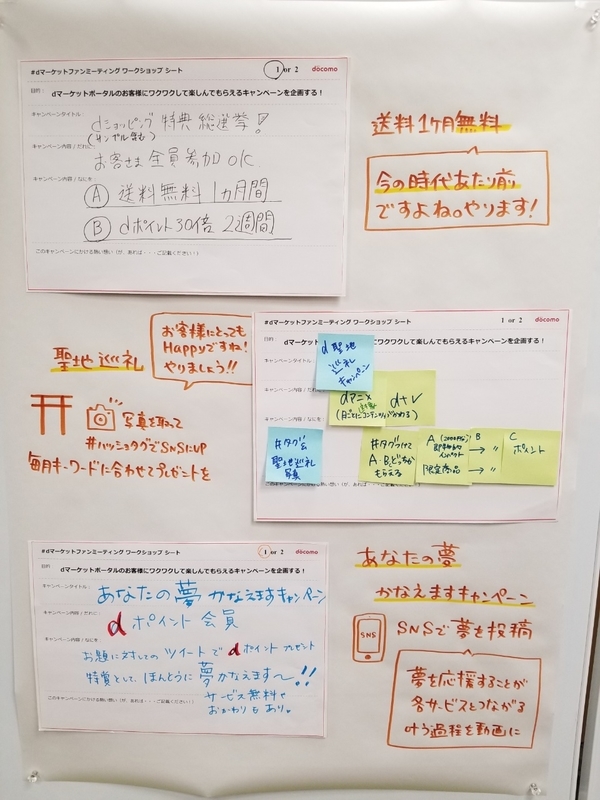 #dマーケットファンミーティング ワークショップ シート
1 or 2
döcomo
目的：
dマーケットポータルのお客様にワクワクして楽しんでもらえるキャンペーンを企画する！
キャンペーンタイトル：
dショッピング 特典 総選挙！
キャンペーン内容 / だれに：
お客さま 全員参加 OK
キャンペーン内容 / なにを：
A 送料無料 1ヵ月間
B dポイント30倍 2週間
このキャンペーンにかける熱い想い！（が、あれば・・・ご記載ください！）
送料1ヶ月無料
今の時代あたり前
ですよね。やります！
聖地巡礼
お客様にとっても
Happyですね！
やりましょう!!
写真を取って
#ハッシュタグでSNSにUP
毎月キーワードに合わせてプレゼントを
#dマーケットファンミーティング ワークショップ シート
1 or 2
döcomo
目的：
して楽しんでもらえるキャンペーンを企画する！
キャンペーンタイトル：
d聖地
巡礼
キャンペーン
キャンペーン内容 / だれに
dアニメ
(月ごとにコンテンツがかわる)
dTV
キャンペーン内容 / なにを：
#タグ
聖地巡礼
写真
#タグつけて
A・Bどっちか
もらえる
A
限定商品
B
→ 〃
→ 〃
C
ポイント
このキャンペーンにかける熱い想い！（が、あれば・・・ご記載ください！）
#dマーケットファンミーティング ワークショップ シート
1 or 2
döcomo
目的：
dマーケットポータルのお客様にワクワクして楽しんでもらえるキャンペーンを企画する！
キャンペーンタイトル：
あなたの夢 かなえますキャンペーン
キャンペーン内容 / だれに：
d ポイント 会員
キャンペーン内容 / なにを
お題に対してのツイートで dポイント プレゼント
特賞として、ほんとうに夢かなえます〜!!
サービス無料や
おかわりもあり。
このキャンペーンにかける熱い想い！（が、あれば・・・ご記載ください！）
あなたの夢
かなえますキャンペーン
SNS
SNSで夢を投稿
夢を応援することが
各サービスとつながる
叶う過程を動画に